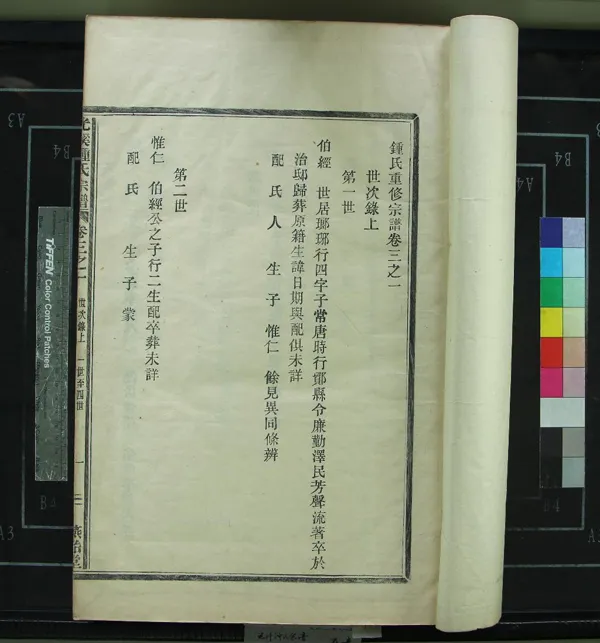 鍾氏重修宗譜卷三之一
世次錄上
第一世
伯經 世居瑯琊行四字子常唐時行鄮縣令廉勤澤民芳聲流著卒於
治邸歸葬原籍生諱日期與配俱未詳
配 氏 人 生 子 惟仁 餘見異同條辨
第二世
惟仁 伯經公之子行二生配卒葬未詳
配 氏 生 子 蒙
鍾氏宗譜 卷三之一 世次錄上 一世至四世
TIFFEN Color Control Patches
A3
B4
B4
A4
A3
B4
A4
A3